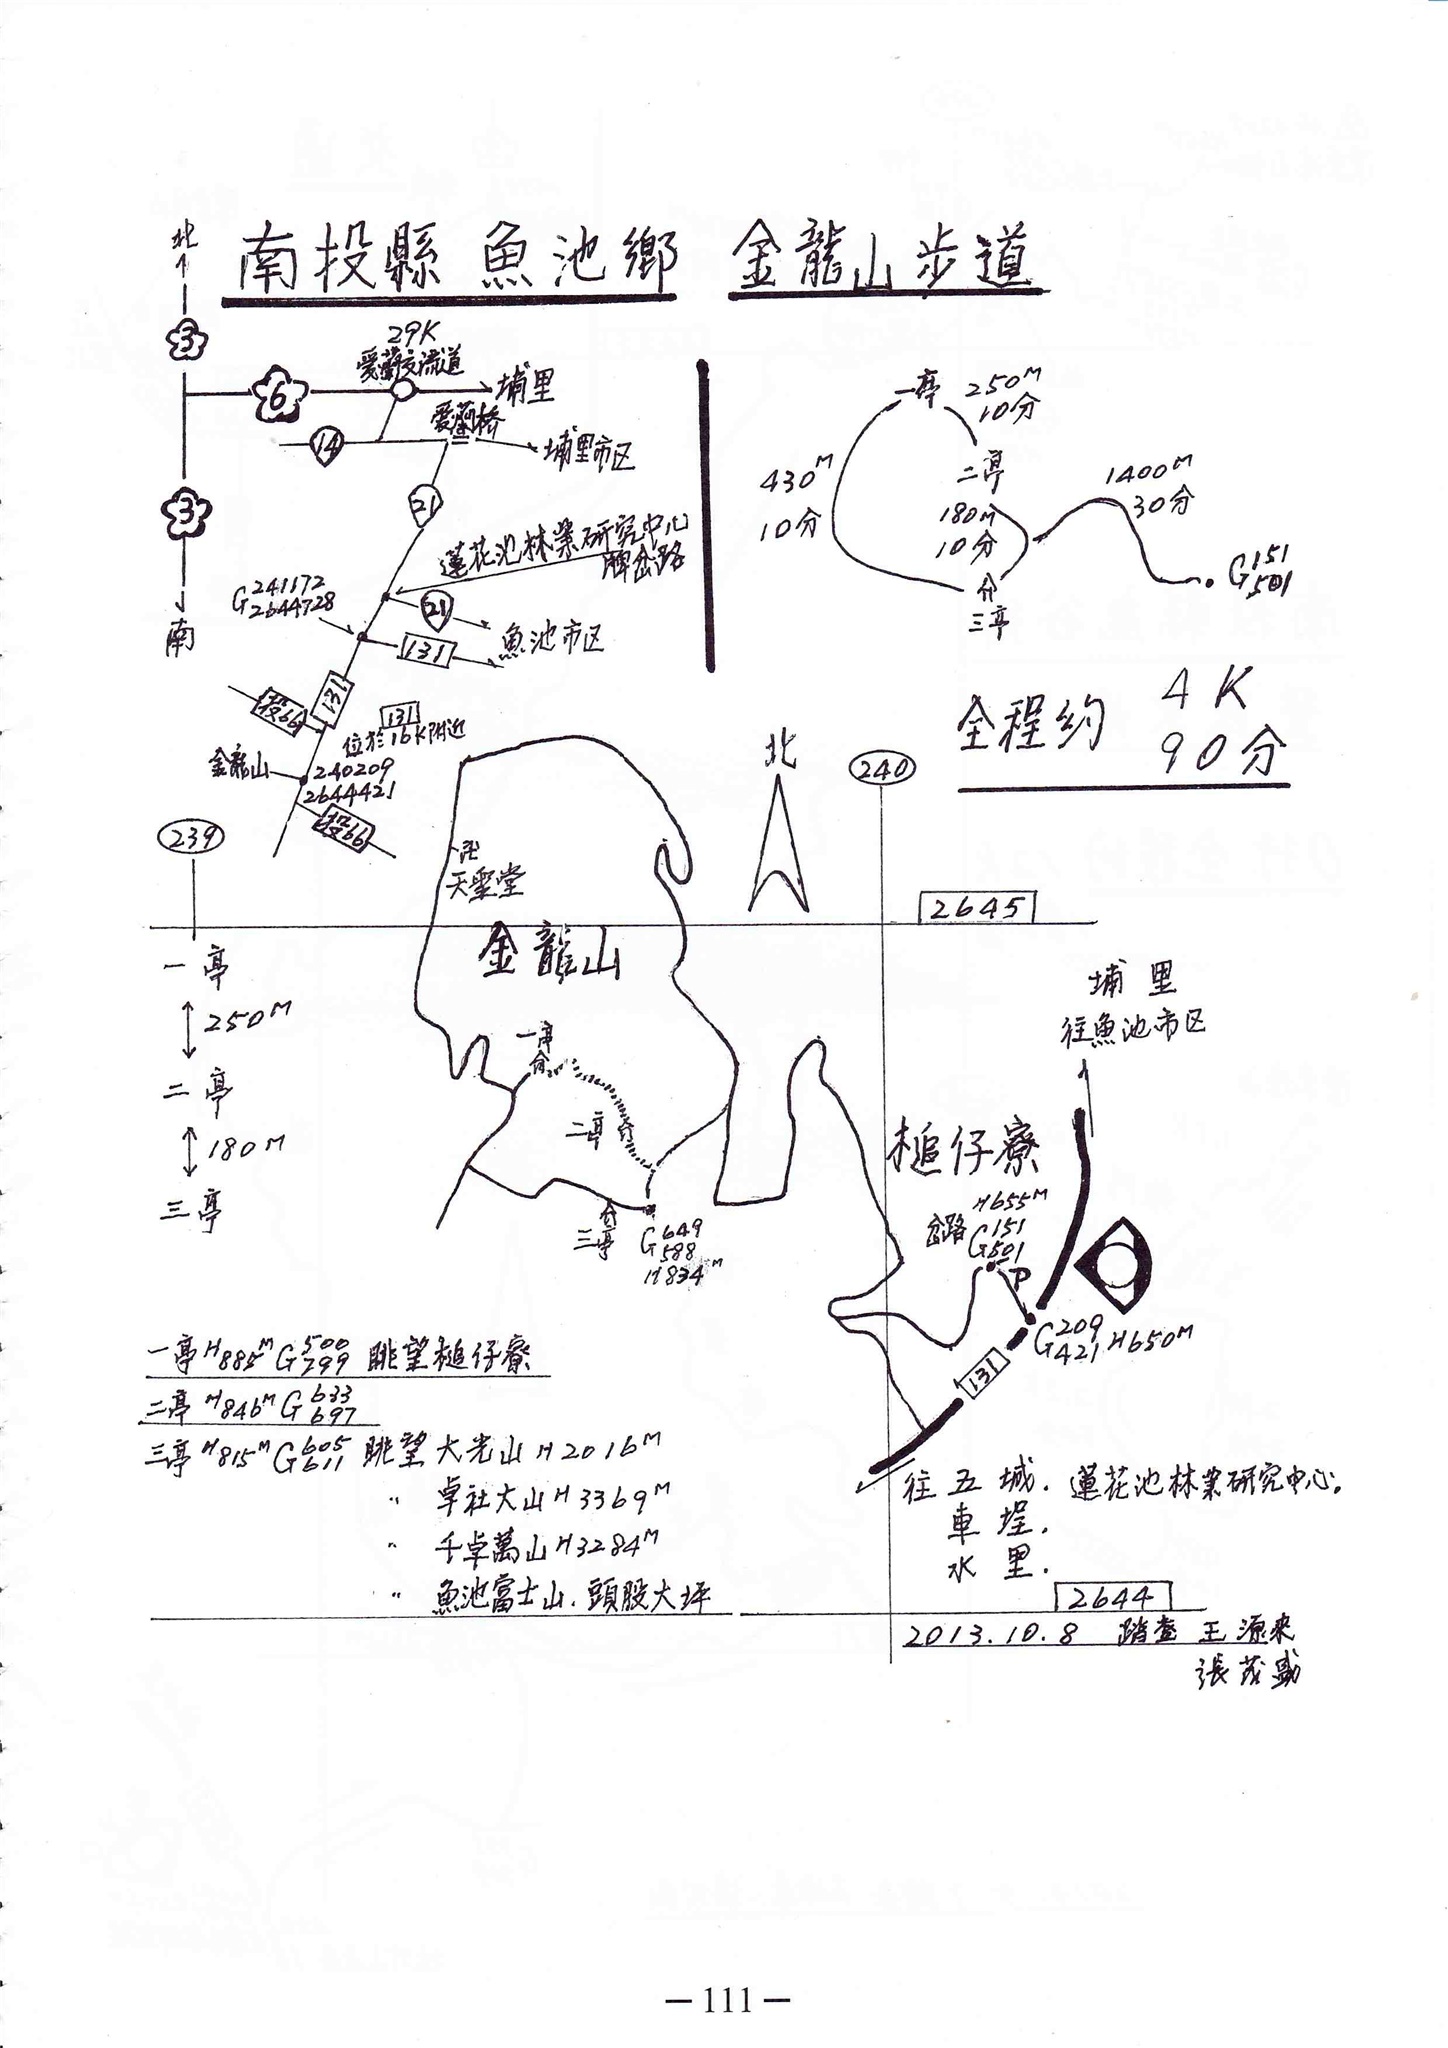 南投縣 魚池鄉 金龍山步道
北
3
6
29K
愛蘭交流道
埔里
愛蘭橋
14
埔里市区
21
3
南
蓮花池林業研究中心
牌岔路
G241172
2644728
21
131
魚池市区
131
投66
131
位於16K附近
金龍山
240209
2644421
投66
一亭
250M
10分
二亭
430M
10分
180M
10分
1400M
30分
G151
501
三亭
全程約 4K
90分
北
239
240
2645
卍
天聖堂
金龍山
一亭
250M
二亭
180M
三亭
一亭
二亭
三亭
G649
588
H834M
埔里
往魚池市区
槌仔寮
H655M
岔路 G151
501
P
G209
421 H650M
131
一亭 H885M G500
799 眺望槌仔寮
二亭 H846M G633
697
三亭 H815M G605
611 眺望 大光山 H2016M
〃 卓社大山 H3369M
〃 干卓萬山 H3284M
〃 魚池富士山.頭股大坪
往五城. 蓮花池林業研究中心.
車埕.
水里.
2644
2013.10.8 踏查 王源來
張茂盛
— 111 —